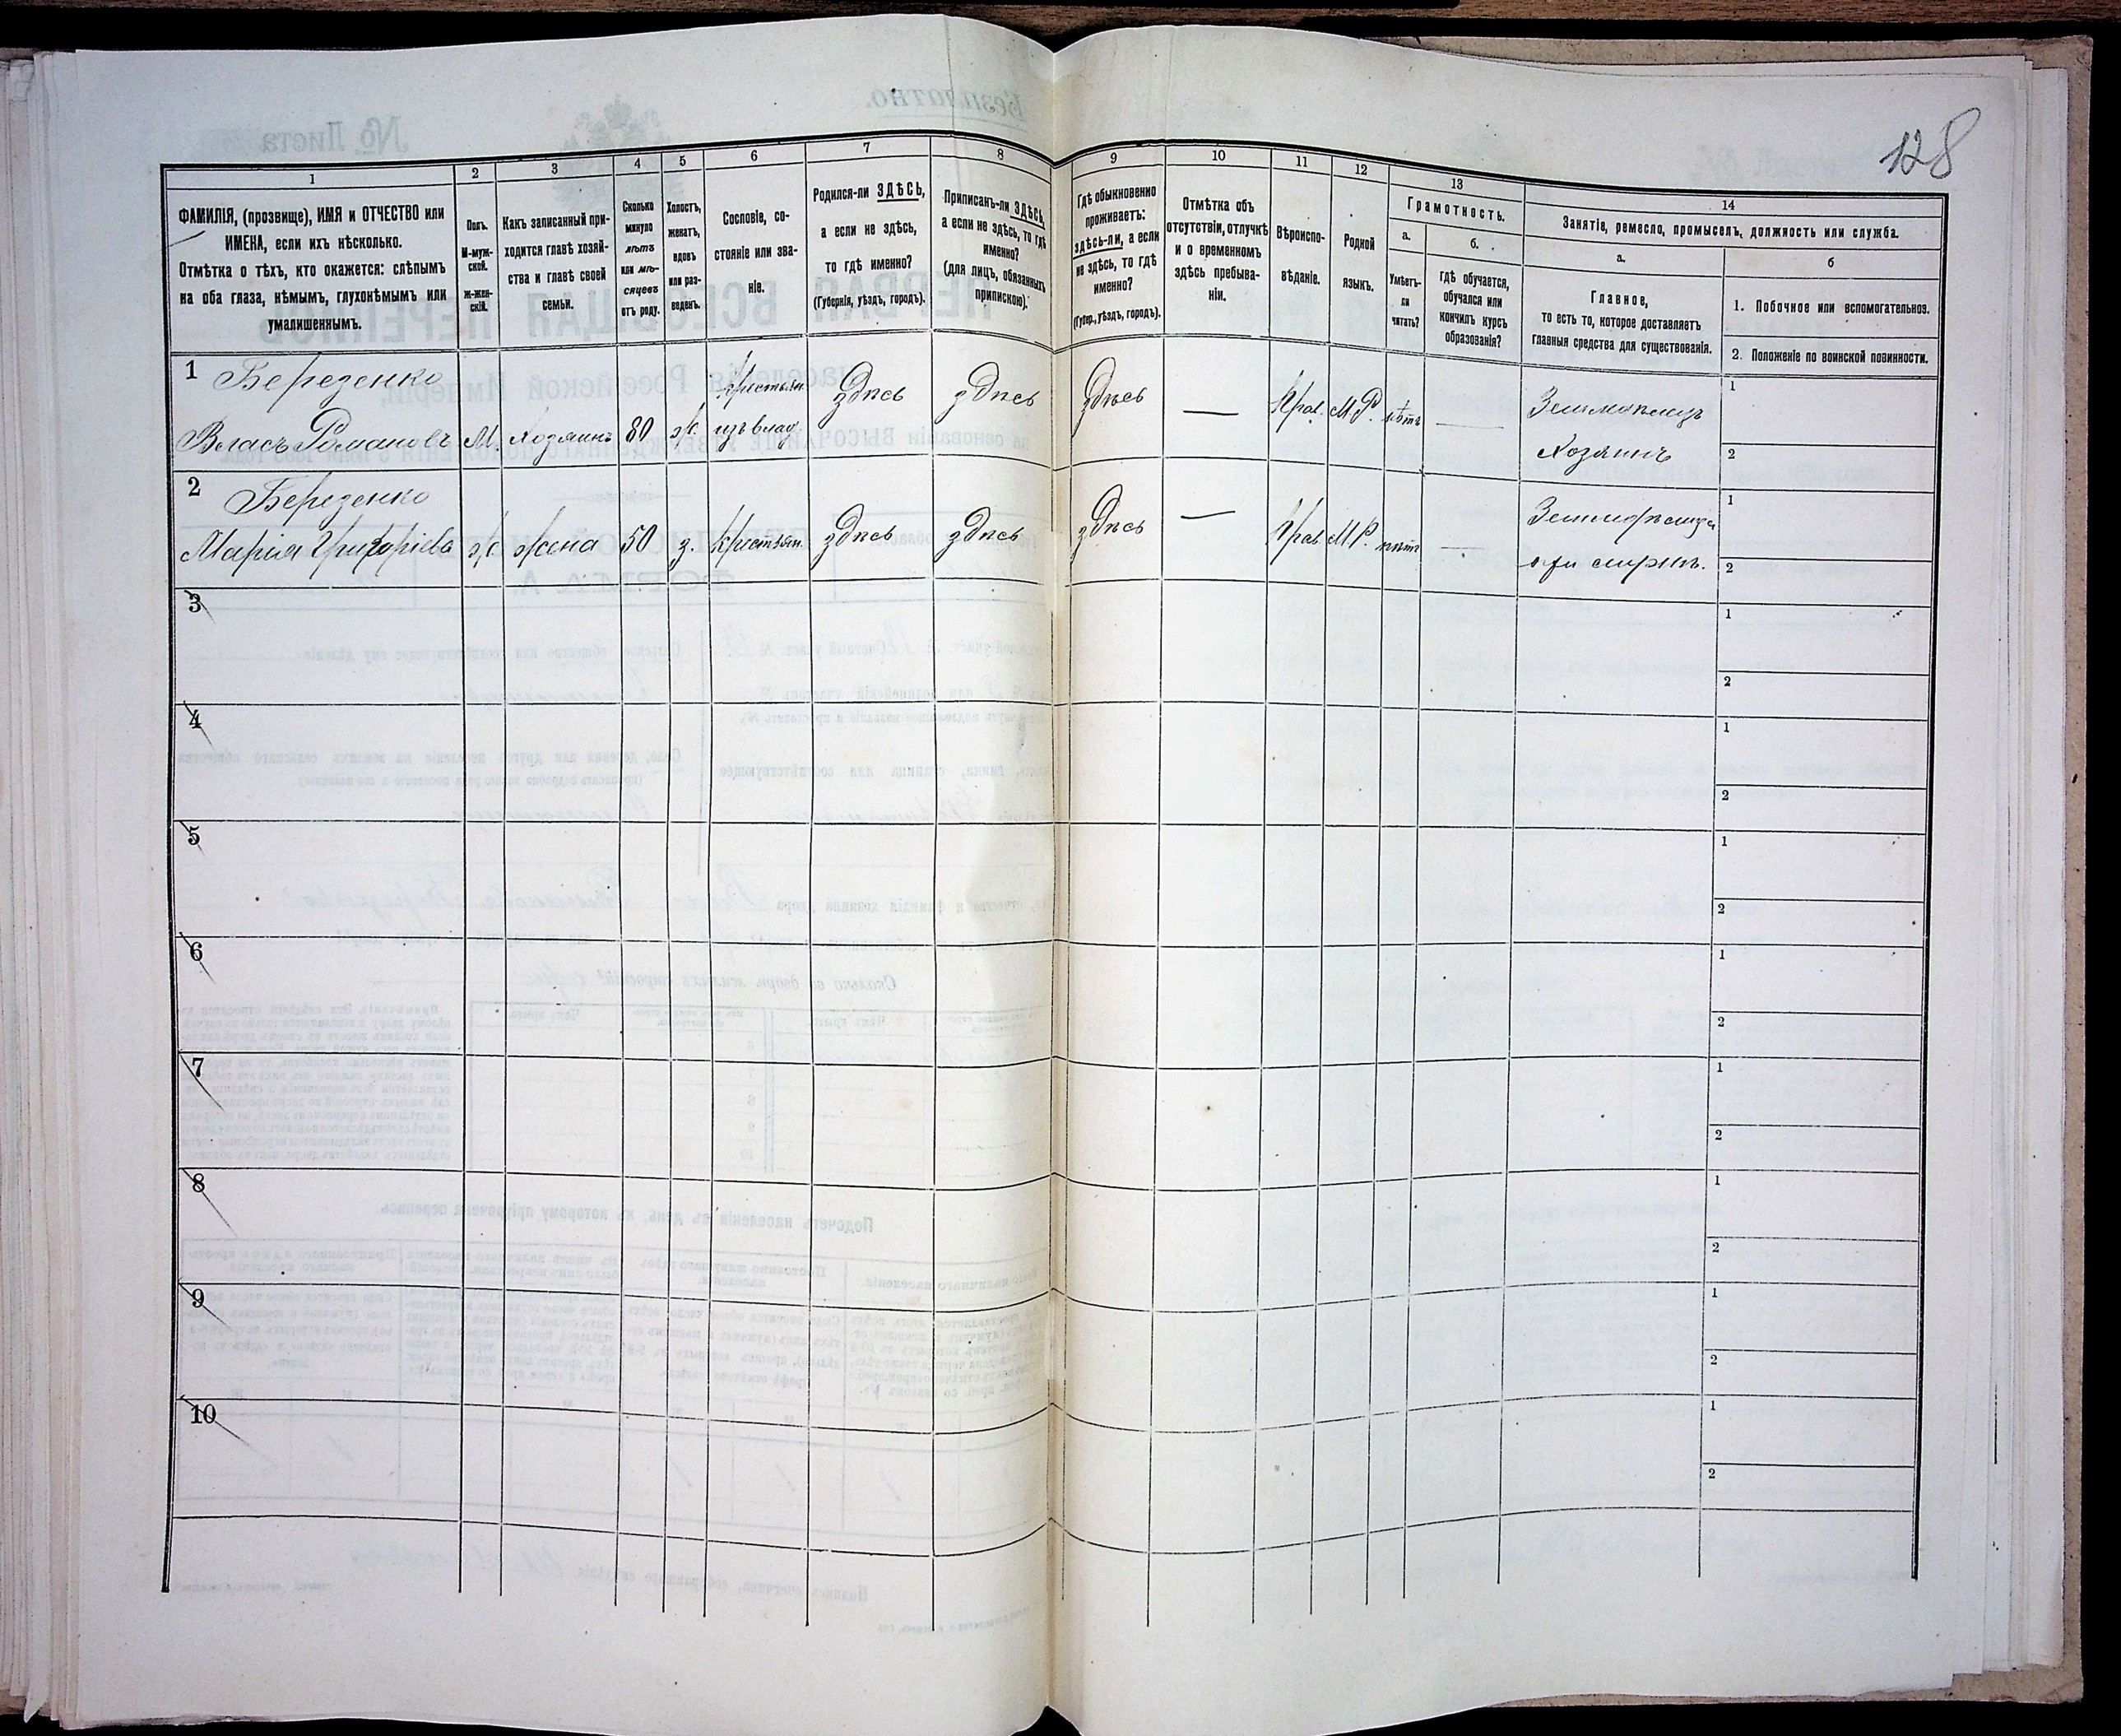 128
1 2 3 4 5 6 7 8 9 10 11 12 13 14
ФАМИЛІЯ, (прозвище), ИМЯ и ОТЧЕСТВО или
ИМЕНА, если ихъ нѣсколько.
Отмѣтка о тѣхъ, кто окажется: слѣпымъ
на оба глаза, нѣмымъ, глухонѣмымъ или
умалишеннымъ.
Полъ.
М-муж-
ской.
ж-жен-
скій.
Какъ записанный при-
ходится главѣ хозяй-
ства и главѣ своей
семьи.
Сколько
минуло
лѣтъ
или мѣ-
сяцевъ
отъ роду.
Холостъ,
женатъ,
вдовъ
или раз-
веденъ.
Сословіе, со-
стояніе или зва-
ніе.
Родился-ли ЗДѢСЬ,
а если не здѣсь,
то гдѣ именно?
(Губернія, уѣздъ, городъ).
Приписанъ-ли ЗДѢСЬ,
а если не здѣсь, то гдѣ
именно?
(для лицъ, обязанныхъ
припискою).
Гдѣ обыкновенно
проживаетъ:
здѣсь-ли, а если
не здѣсь, то гдѣ
именно?
(Губер., уѣздъ, городъ).
Отмѣтка объ
отсутствіи, отлучкѣ
и о временномъ
здѣсь пребыва-
ніи.
Вѣроиспо-
вѣданіе.
Родной
языкъ.
Грамотность.
а.
Умѣетъ-
ли
читать?
б.
гдѣ обучается,
обучался или
кончилъ курсъ
образованія?
Занятіе, ремесло, промыселъ, должность или служба.
а.
Главное,
то есть то, которое доставляетъ
главныя средства для существованія.
б
1. Побочное или вспомогательноз.
2. Положеніе по воинской повинности.
1 Березенко крестьян. здѣсь здѣсь здѣсь — Прав. М Р. нѣтъ — 1
Власъ Романовъ М. хозяинъ 80 ж. изъ влад. Хозяинъ 2
2 Березенко здѣсь здѣсь здѣсь — Прав М Р. нѣтъ — 1
Марія Григоріева ж жена 50 з. крестьян. при 2
3 1
2
4 1
2
5 1
2
6 1
2
7 1
2
8 1
2
9 1
2
10 1
2